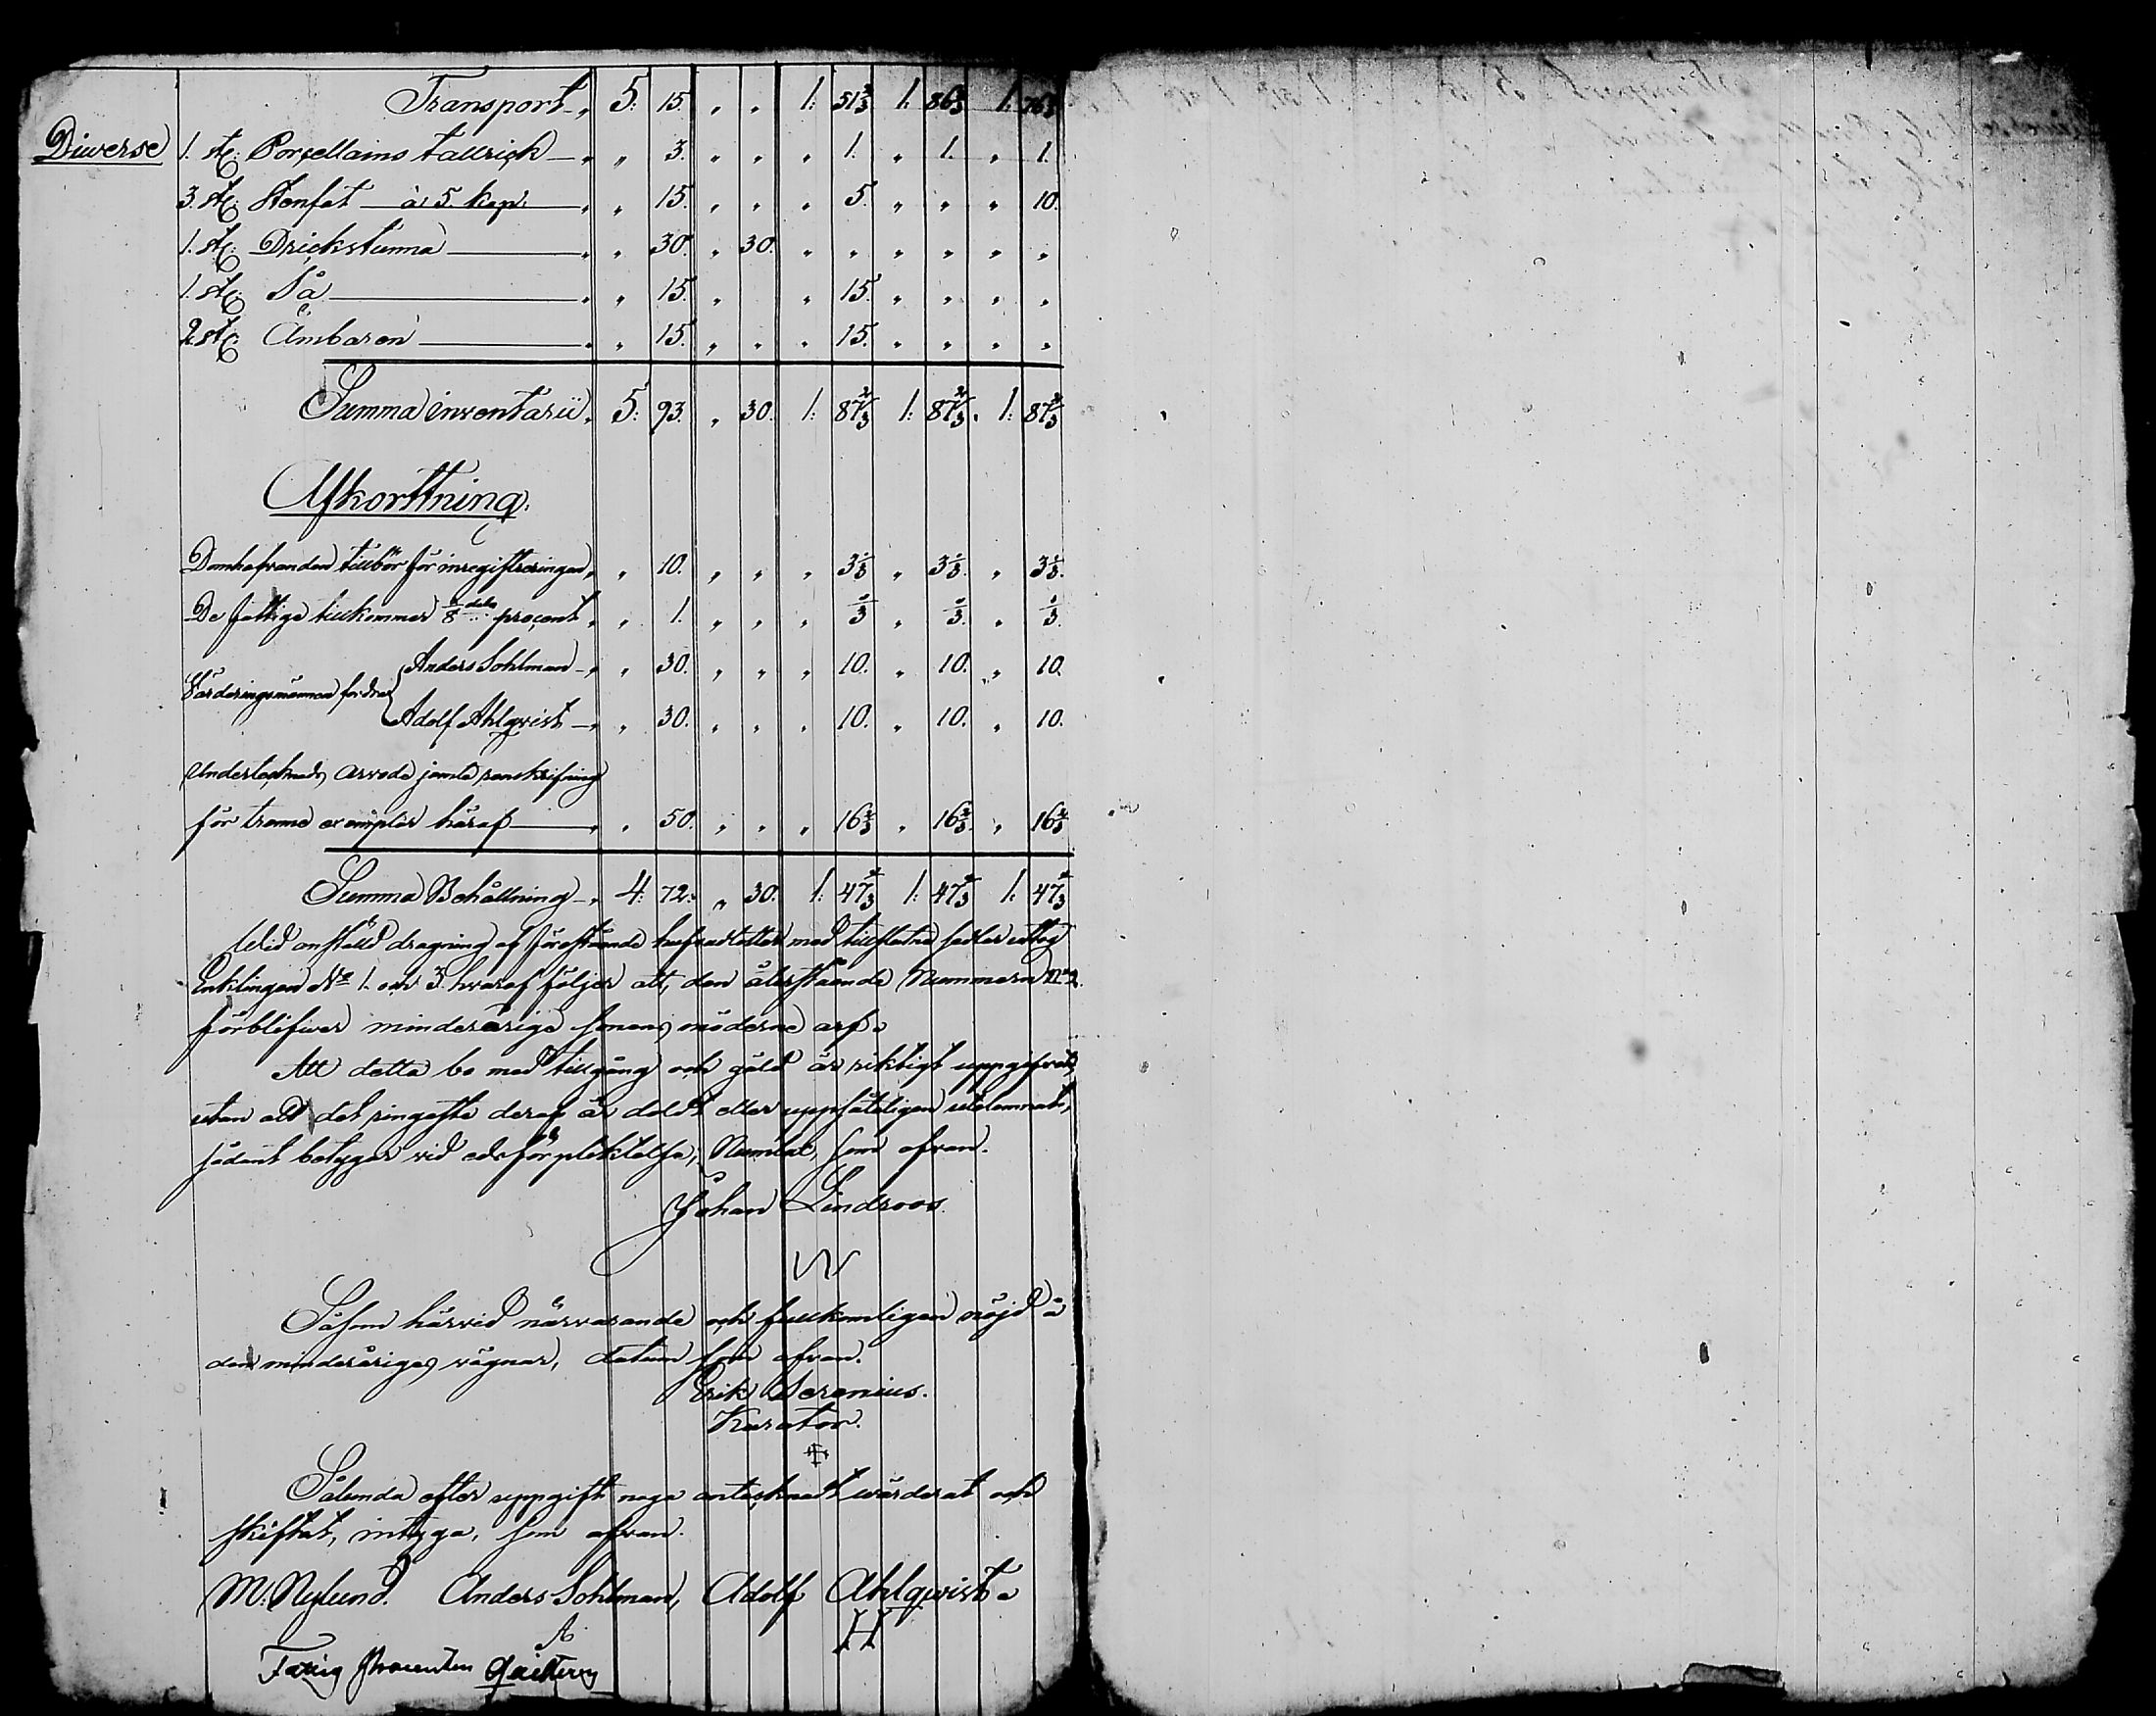 Transport 5: 15. " " 1: 51 2/3 1: 86 2/3 1: 76 2/3
Diverse 1. st: Porcellains tallrick " 3. " " " 1. " 1. " 1.
3. st: Stenfat à 5. kop: " 15. " " " 5. " " " 10.
1. st: Drickstunna " 30. " 30. " " " " " "
1. st: Så " 15. " " 15. " " " "
2 st: Ämbaren " 15. " " " 15. " " " "
Summa inventarii 5: 93. " 30. 1: 87 2/3 1: 87 2/3 1: 87 2/3
Afkorttning.
Domhafvanden tillhör för inregistreringen " 10. " " " 3 1/3 " 3 1/3. " 3 1/3.
De fattige tillkommer 1/8 dels procent " 1. " " " 1/3 " 1/3. " 1/3.
Anders Sohlman " 30. " " " 10. " 10. " 10.
Värderingsmännen fordra
Adolf Ahlqvist " 30. " " " 10. " 10. " 10.
Undertecknads arvode jemte renskrifning
för trenne exemplar häraf " 50. " " " 16 2/3 " 16 2/3. " 16 2/3
Summa Behållning 4: 72. " 30. 1: 47 2/3 1: 47 2/3 1: 47 2/3
Wid anställd dragning af förestående hufvudlotter med tillslutna sedlar uttog
Enklingen No 1. och 3. hvaraf följer att, den återstående Nummern No 2.
förblifver minderårige sonens möderne arf.
Att detta bo med tillgång och gäld är riktigt uppgifvet,
utan att det ringaste deraf är doldt eller uppsåteligen utelemnat,
sådant betygar vid edsförpliktelse, som ofvan.
Johan Lindroos.
Såsom härvid närvarande och fullkomligen nöjd å
den minderåriges vägnar, datum som ofvan.
Erik Serenius.
Kurator.
Sålunda efter uppgift noga antecknadt värderat och
skiftat, intyga, som ofvan.
M: Nylund. Anders Sohlman, Adolf Ahlqwist.
A H